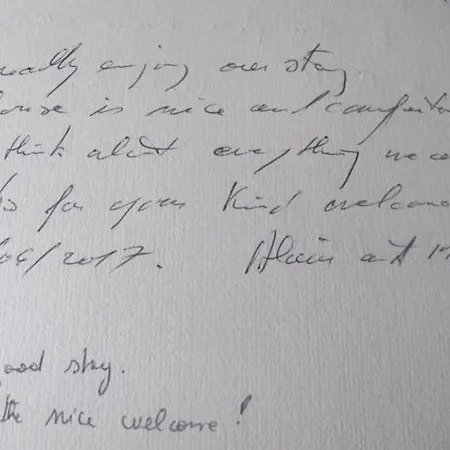 really enjoy our stay
house is nice and comforta
think about everything we
s for your kind welcome
/06/2017. Alain and M
good stay.
the nice welcome!